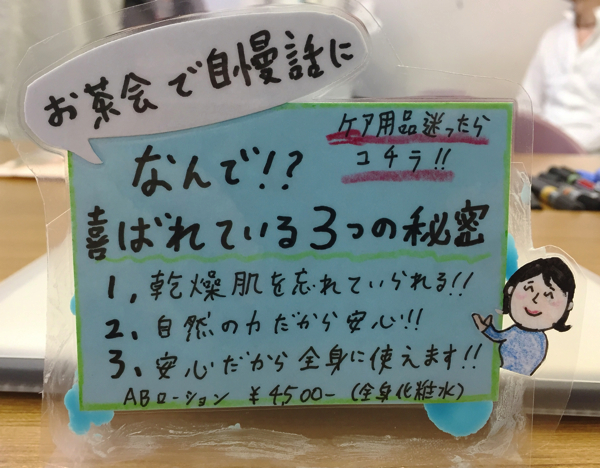 お茶会で自慢話に
ケア用品迷ったら
コチラ!!
なんで!?
喜ばれている3つの秘密
1,乾燥肌を忘れていられる!!
2,自然の力だから安心!!
3,安心だから全身に使えます!!
ABローション ¥4500-(全身化粧水)